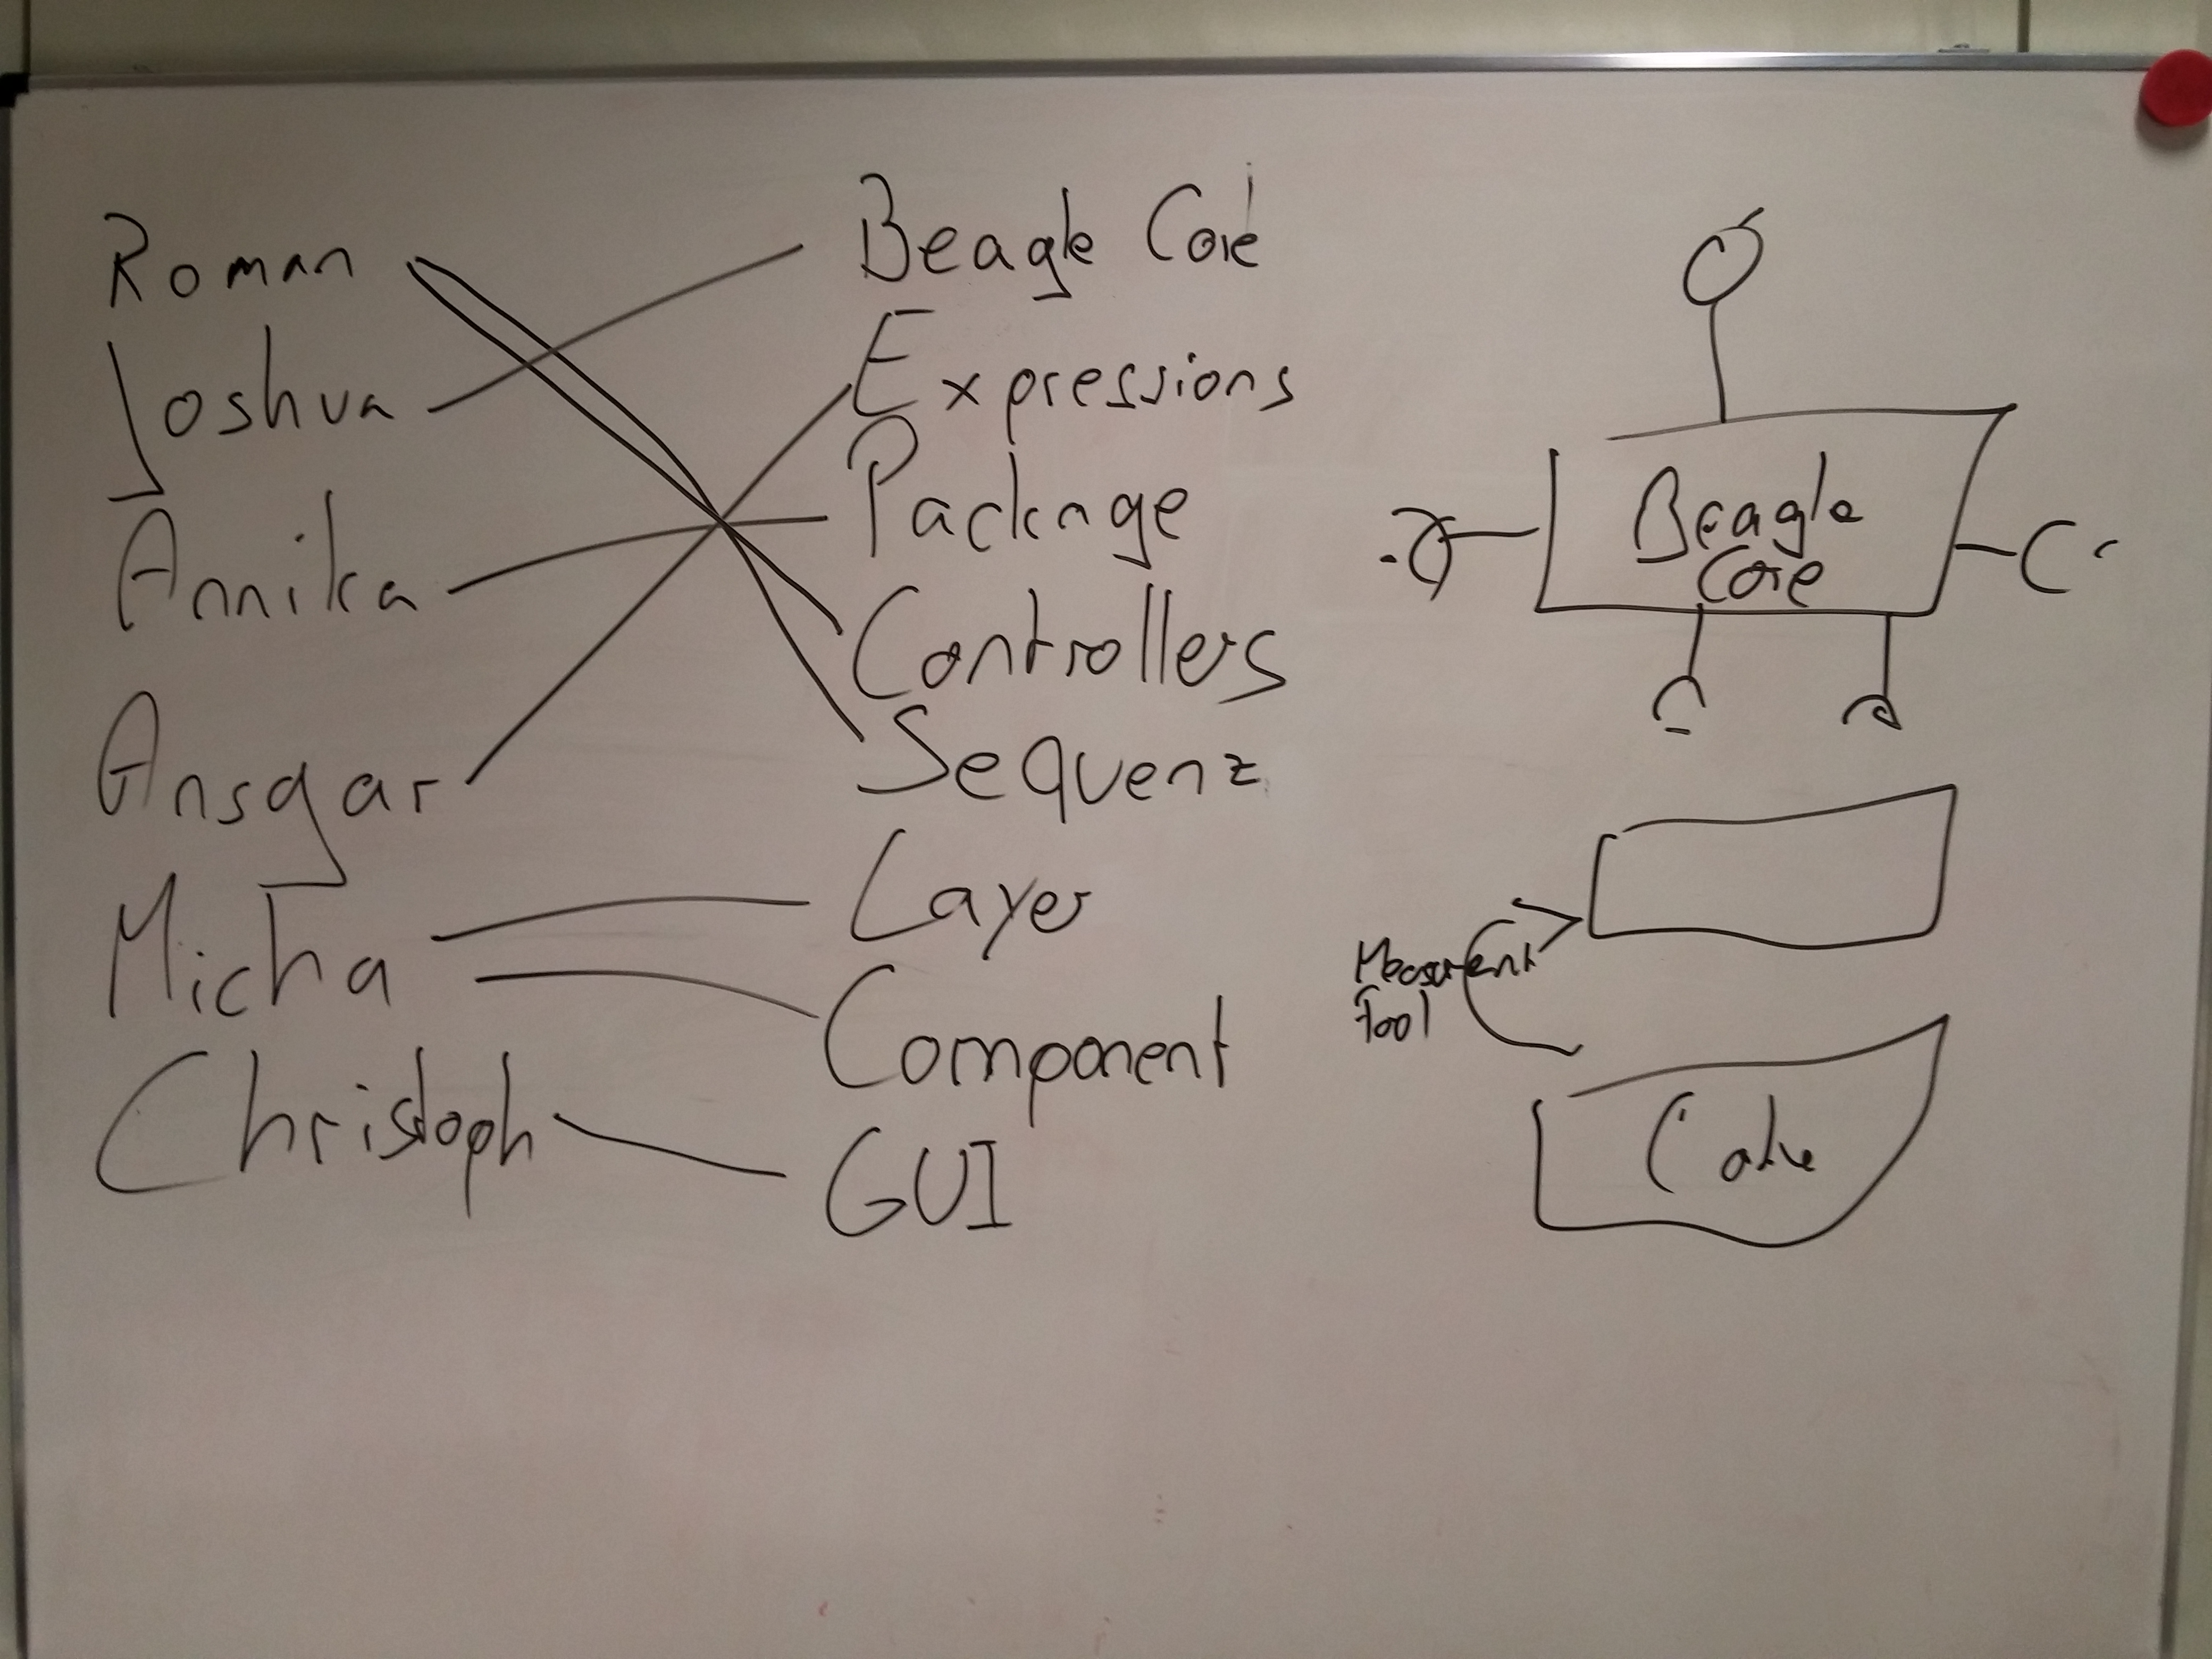 Roman
Joshua
Annika
Ansgar
Micha
Christoph
Beagle Core
Expressions
Package
Controllers
Sequenz
Layer
Component
GUI
Beagle
Core
Tool